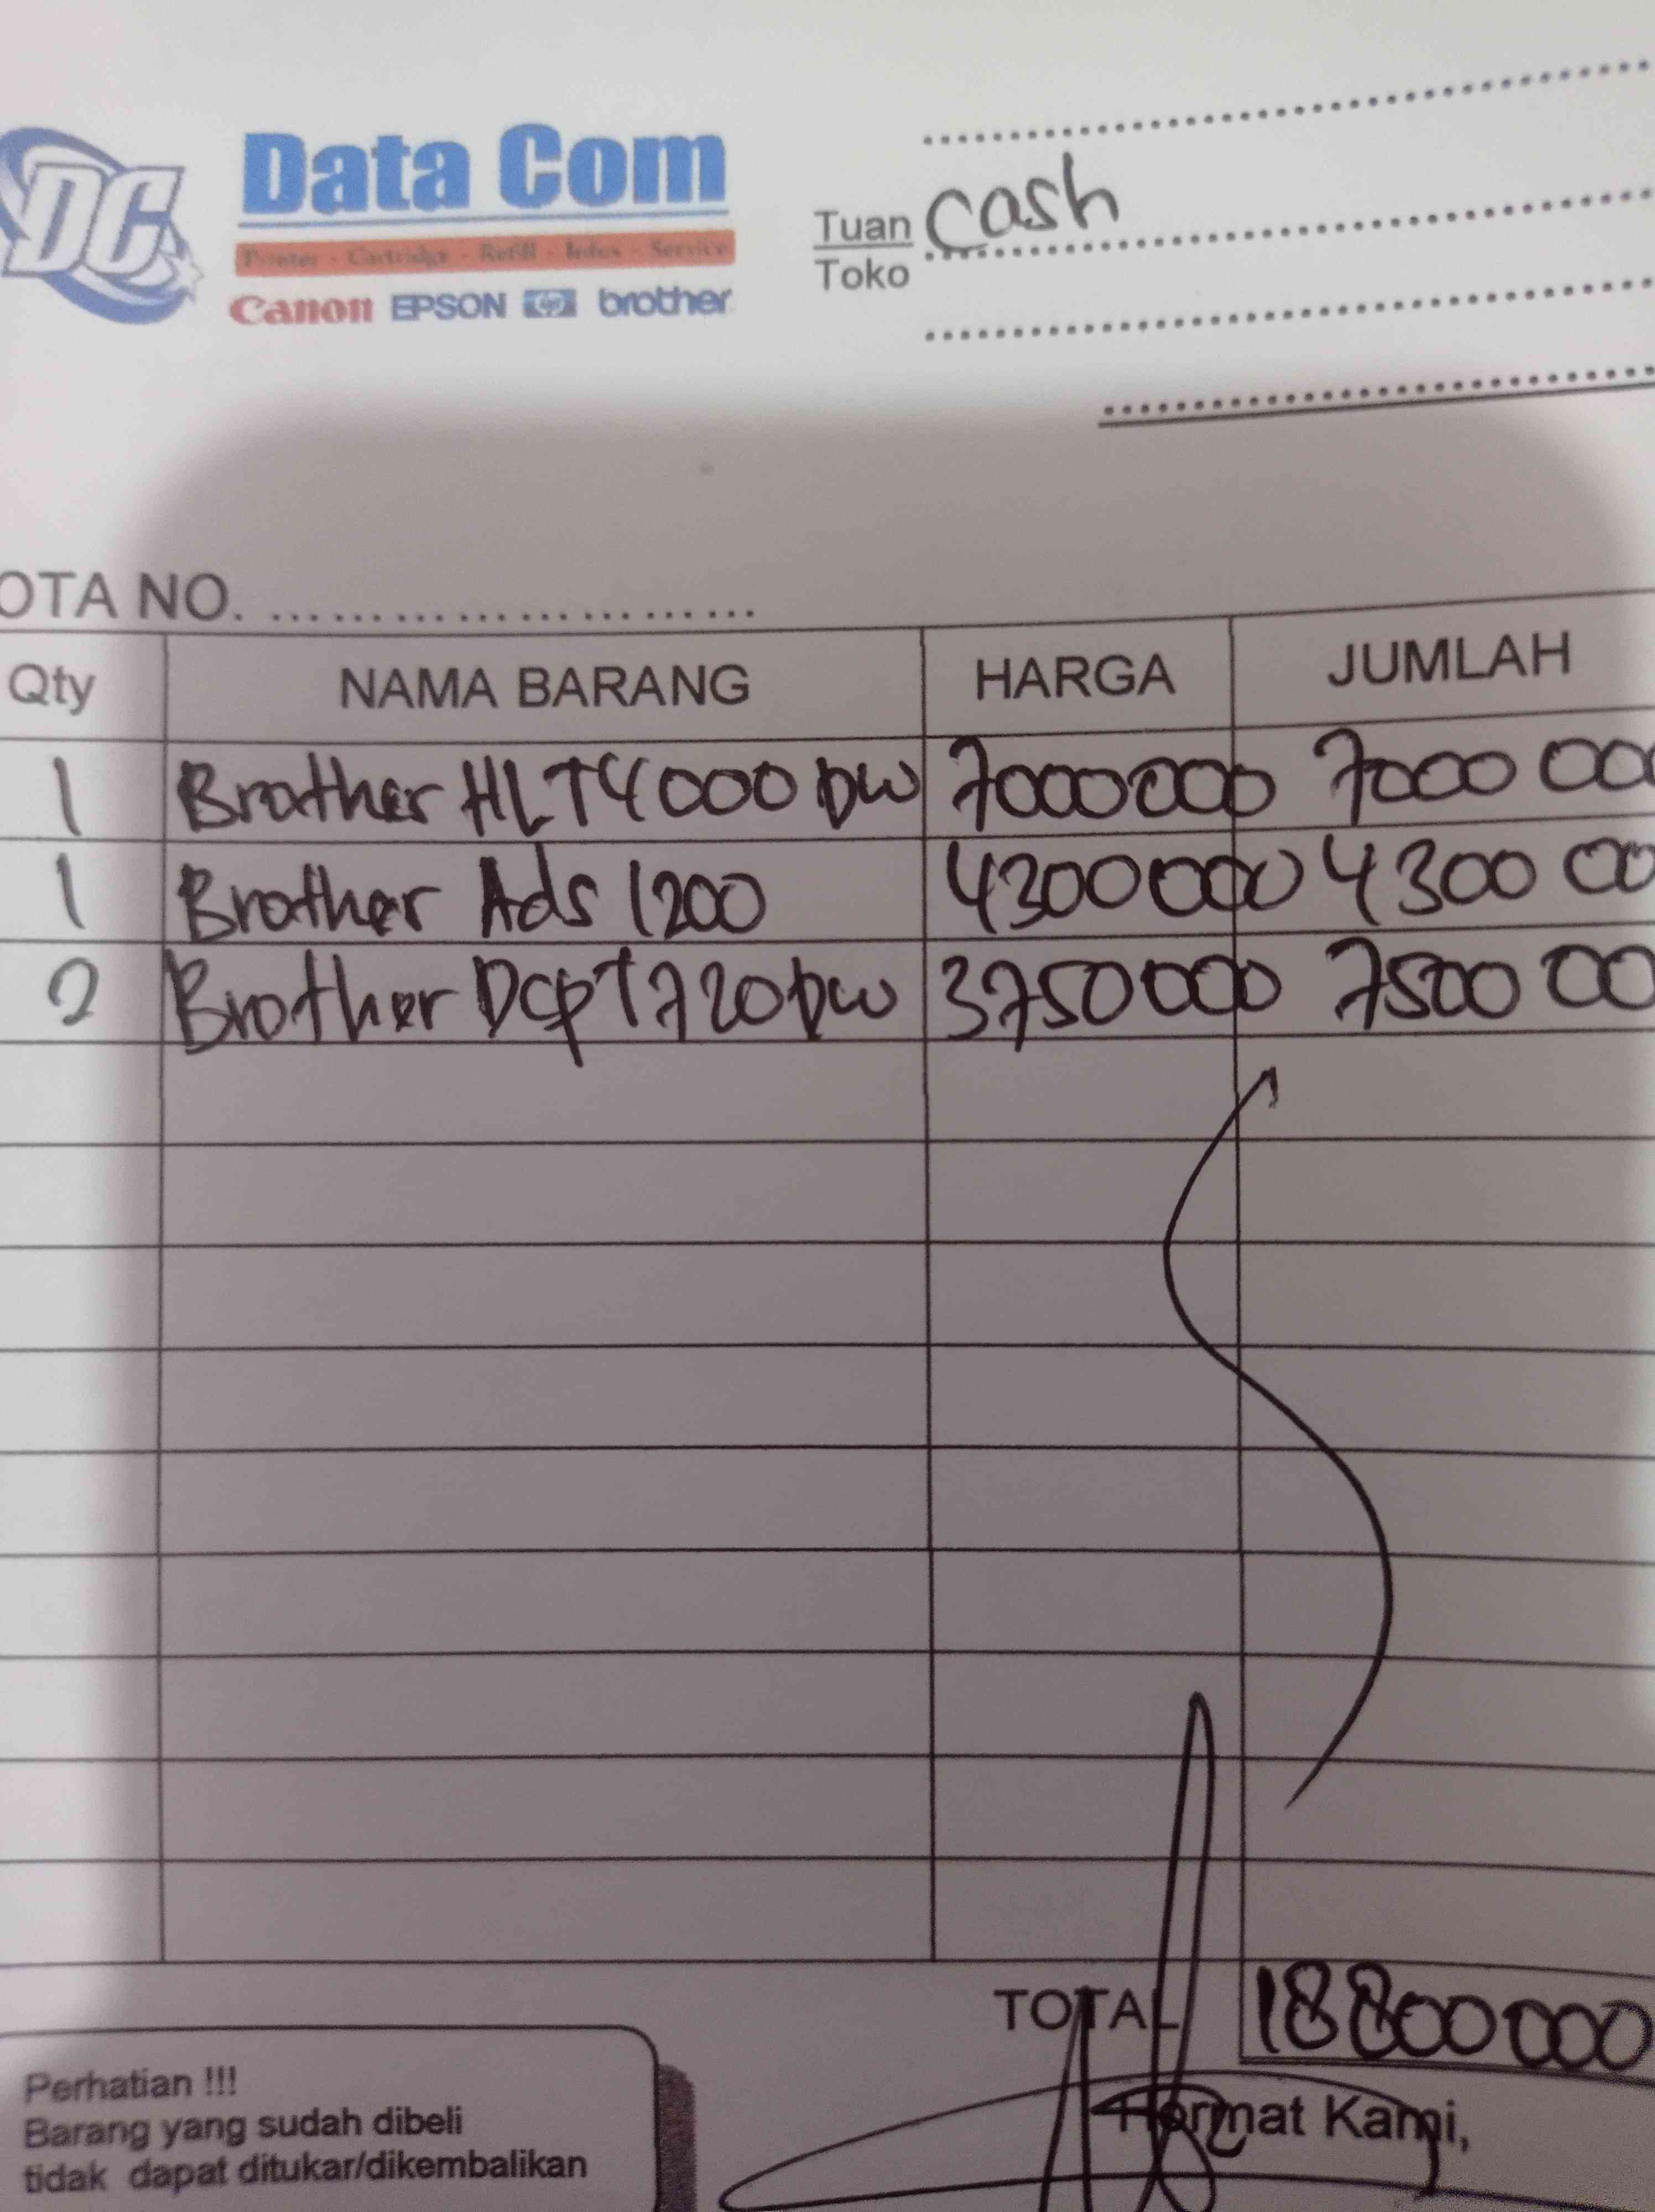 DC
Data Com
Printer - Cartridge - Refill - Infus - Service
Canon EPSON hp brother
Tuan Cash
Toko
OTA NO. ........................
Qty NAMA BARANG HARGA JUMLAH
1 Brother HLT4000 DW 7000000 7000 000
1 Brother Ads 1200 4300000 4300 00
2 Brother DcpT720DW 3750000 7500 00
TOTAL 18800000
Hormat Kami,
Perhatian !!!
Barang yang sudah dibeli
tidak dapat ditukar/dikembalikan